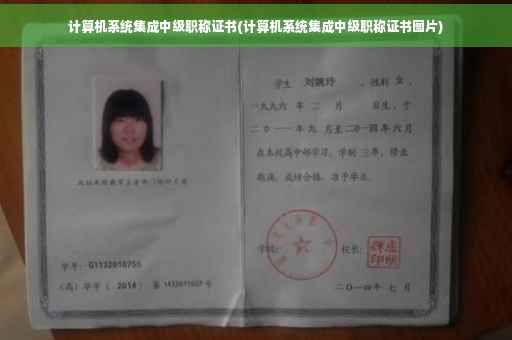 计算机系统集成中级职称证书(计算机系统集成中级职称证书图片)
学生 刘婉玲 , 性别 女 ,
一九九六 年 二 月 日生, 于
二〇一一 年 九 月至 二〇一四 年 六 月
在本校高中部学习, 学制 三 年, 修业
期满, 成绩合格, 准予毕业。
学校: 校长:
学号: G1132010755
(高) 毕字 ( 2014 ) 第 1432011007 号
二〇一四年 七 月